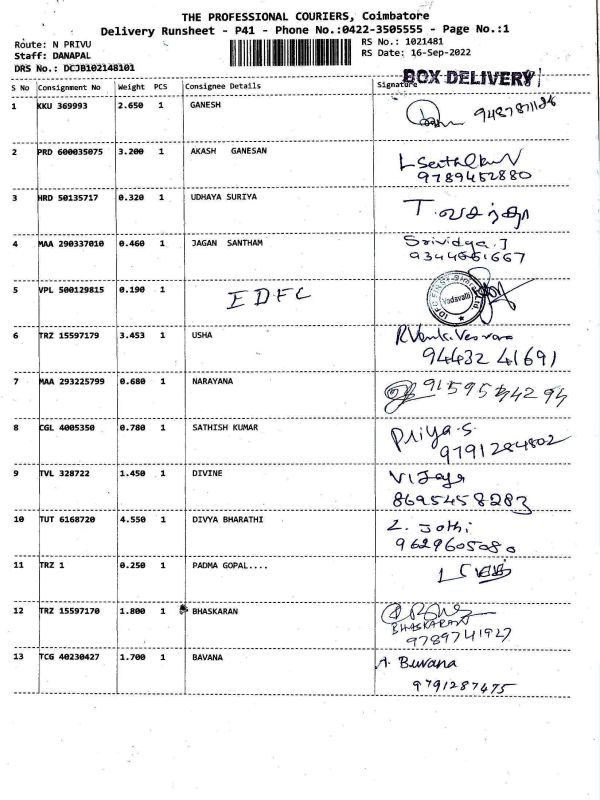 THE PROFESSIONAL COURIERS, Coimbatore
Delivery Runsheet - P41 - Phone No.:0422-3505555 - Page No.:1
Route: N PRIVU RS No.: 1021481
Staff: DANAPAL RS Date: 16-Sep-2022
DRS No.: DCJB102148101
BOX DELIVERY
S No Consignment No Weight PCS Consignee Details Signature
1 KKU 369993 2.650 1 GANESH
2 PRD 600035075 3.200 1 AKASH GANESAN
9789452880
3 HRD 50135717 0.320 1 UDHAYA SURIYA
T. வசந்தா
4 MAA 290337010 0.460 1 JAGAN SANTHAM Srividya.J
9344661667
5 VPL 500129815 0.190 1 IDFC
IDFC FIRST Bank Ltd
Vadavalli
6 TRZ 15597179 3.453 1 USHA
94432 41691
7 MAA 293225799 0.680 1 NARAYANA
8 CGL 4005350 0.780 1 SATHISH KUMAR Priya.S
9791284802
9 TVL 328722 1.450 1 DIVINE Vijaya
8695458283
10 TUT 6168720 4.550 1 DIVYA BHARATHI Z. Jothi
9629605080
11 TRZ 1 0.250 1 PADMA GOPAL....
12 TRZ 15597170 1.800 1 BHASKARAN
BHASKARAN
9789741927
13 TCG 40230427 1.700 1 BAVANA A. Buvana
9791287475